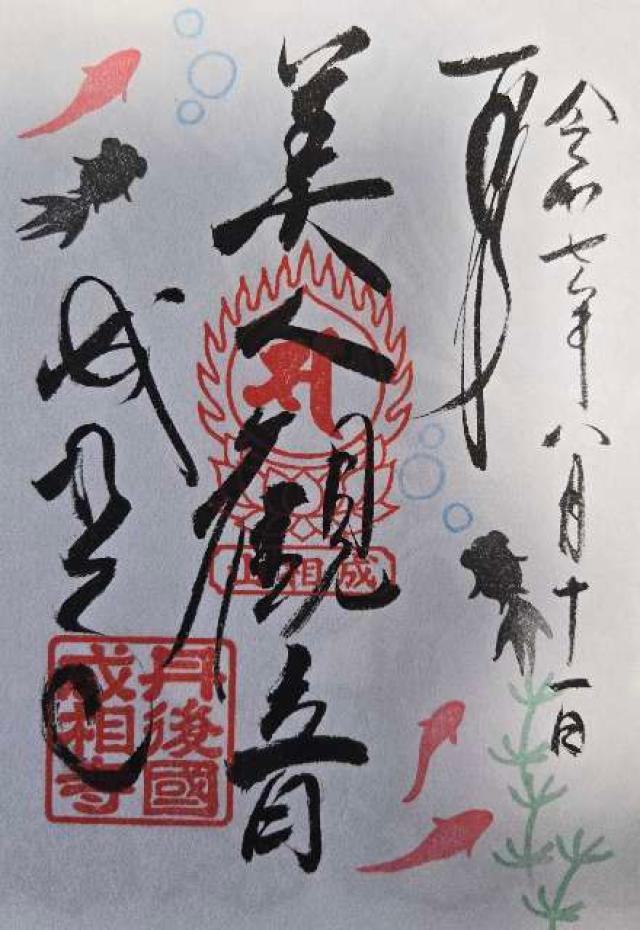 令和七年八月十一日
美人觀音
成相山
成相寺
丹後國
成相寺